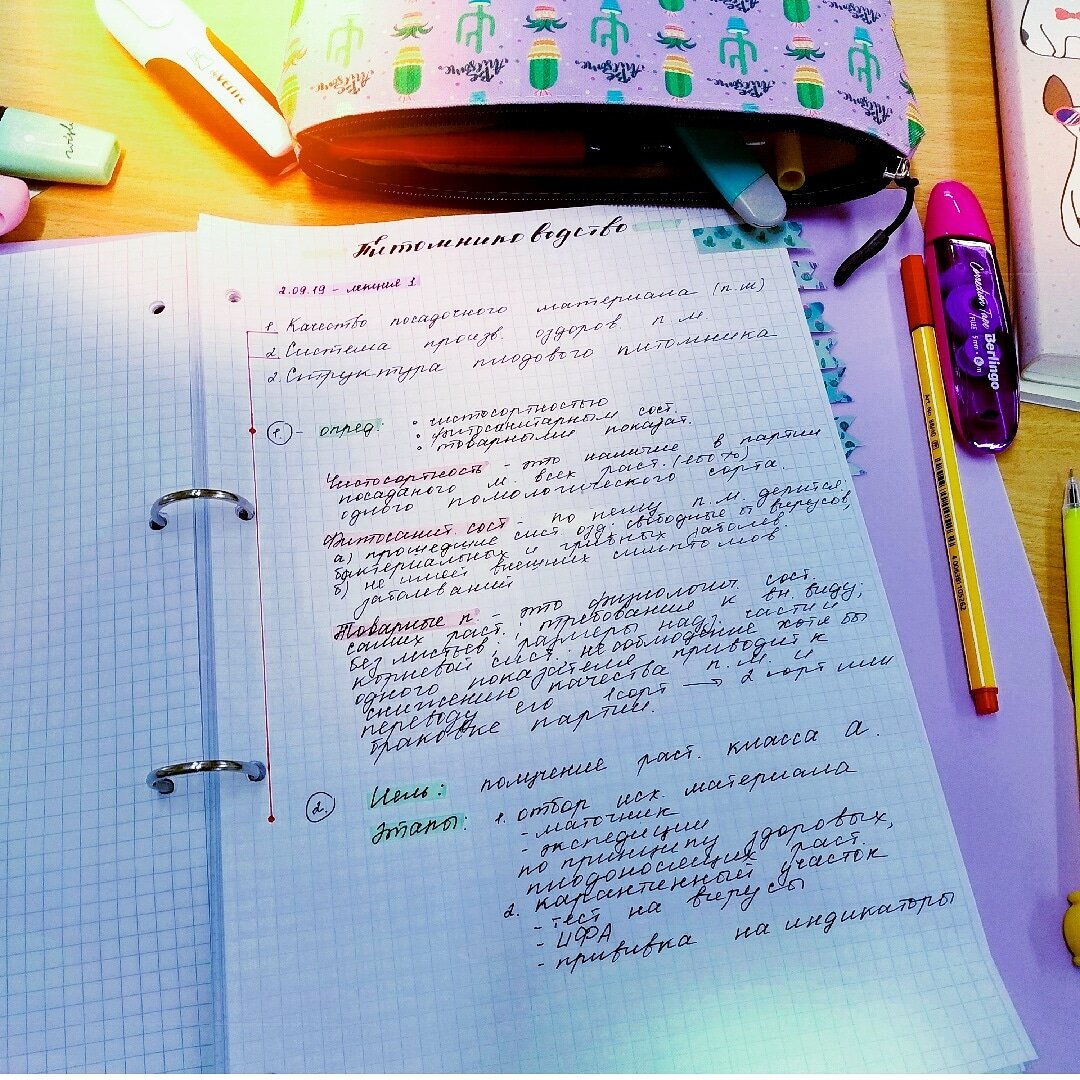 Be Awesome
wish
Питомниководство
2.09.19 - лекция 1
1. Качество посадочного материала (п.м)
2. Система произв. оздоров. п.м.
2. Структура плодового питомника
1. - опред:
· чистосортностью
· фитосанитарным сост.
· товарными показат.
Чистосортность - это наличие в партии
посаданого м. всех раст. (100%)
одного помологического сорта.
Фитосанит. сост - по нему п.м. делится:
а) прошедшие сист. озд: свободные от вирусов,
бактериальных и грибных заболев.
б) не имеей внешних симптомов
заболеваний
Товарные п - это физиологич сост.
самих раст.; требование к вн. виду;
без листьев; размеры надз. части и
корневой сист. несоблюдение хотя бы
одного показателя приводит к
снижению качества п.м. и
переводу его 1сорт → 2 сорт или
браковке партии.
2. Цель: получение раст. класса а.
Этапы: 1. отбор исх. материала
- маточник
- экспедиции
по принципу здоровых,
плодоносящих раст.
2. карантенный участок
- тест на вирусы
- ИФА
- прививка на индикаторы
Correction Tape Berlingo